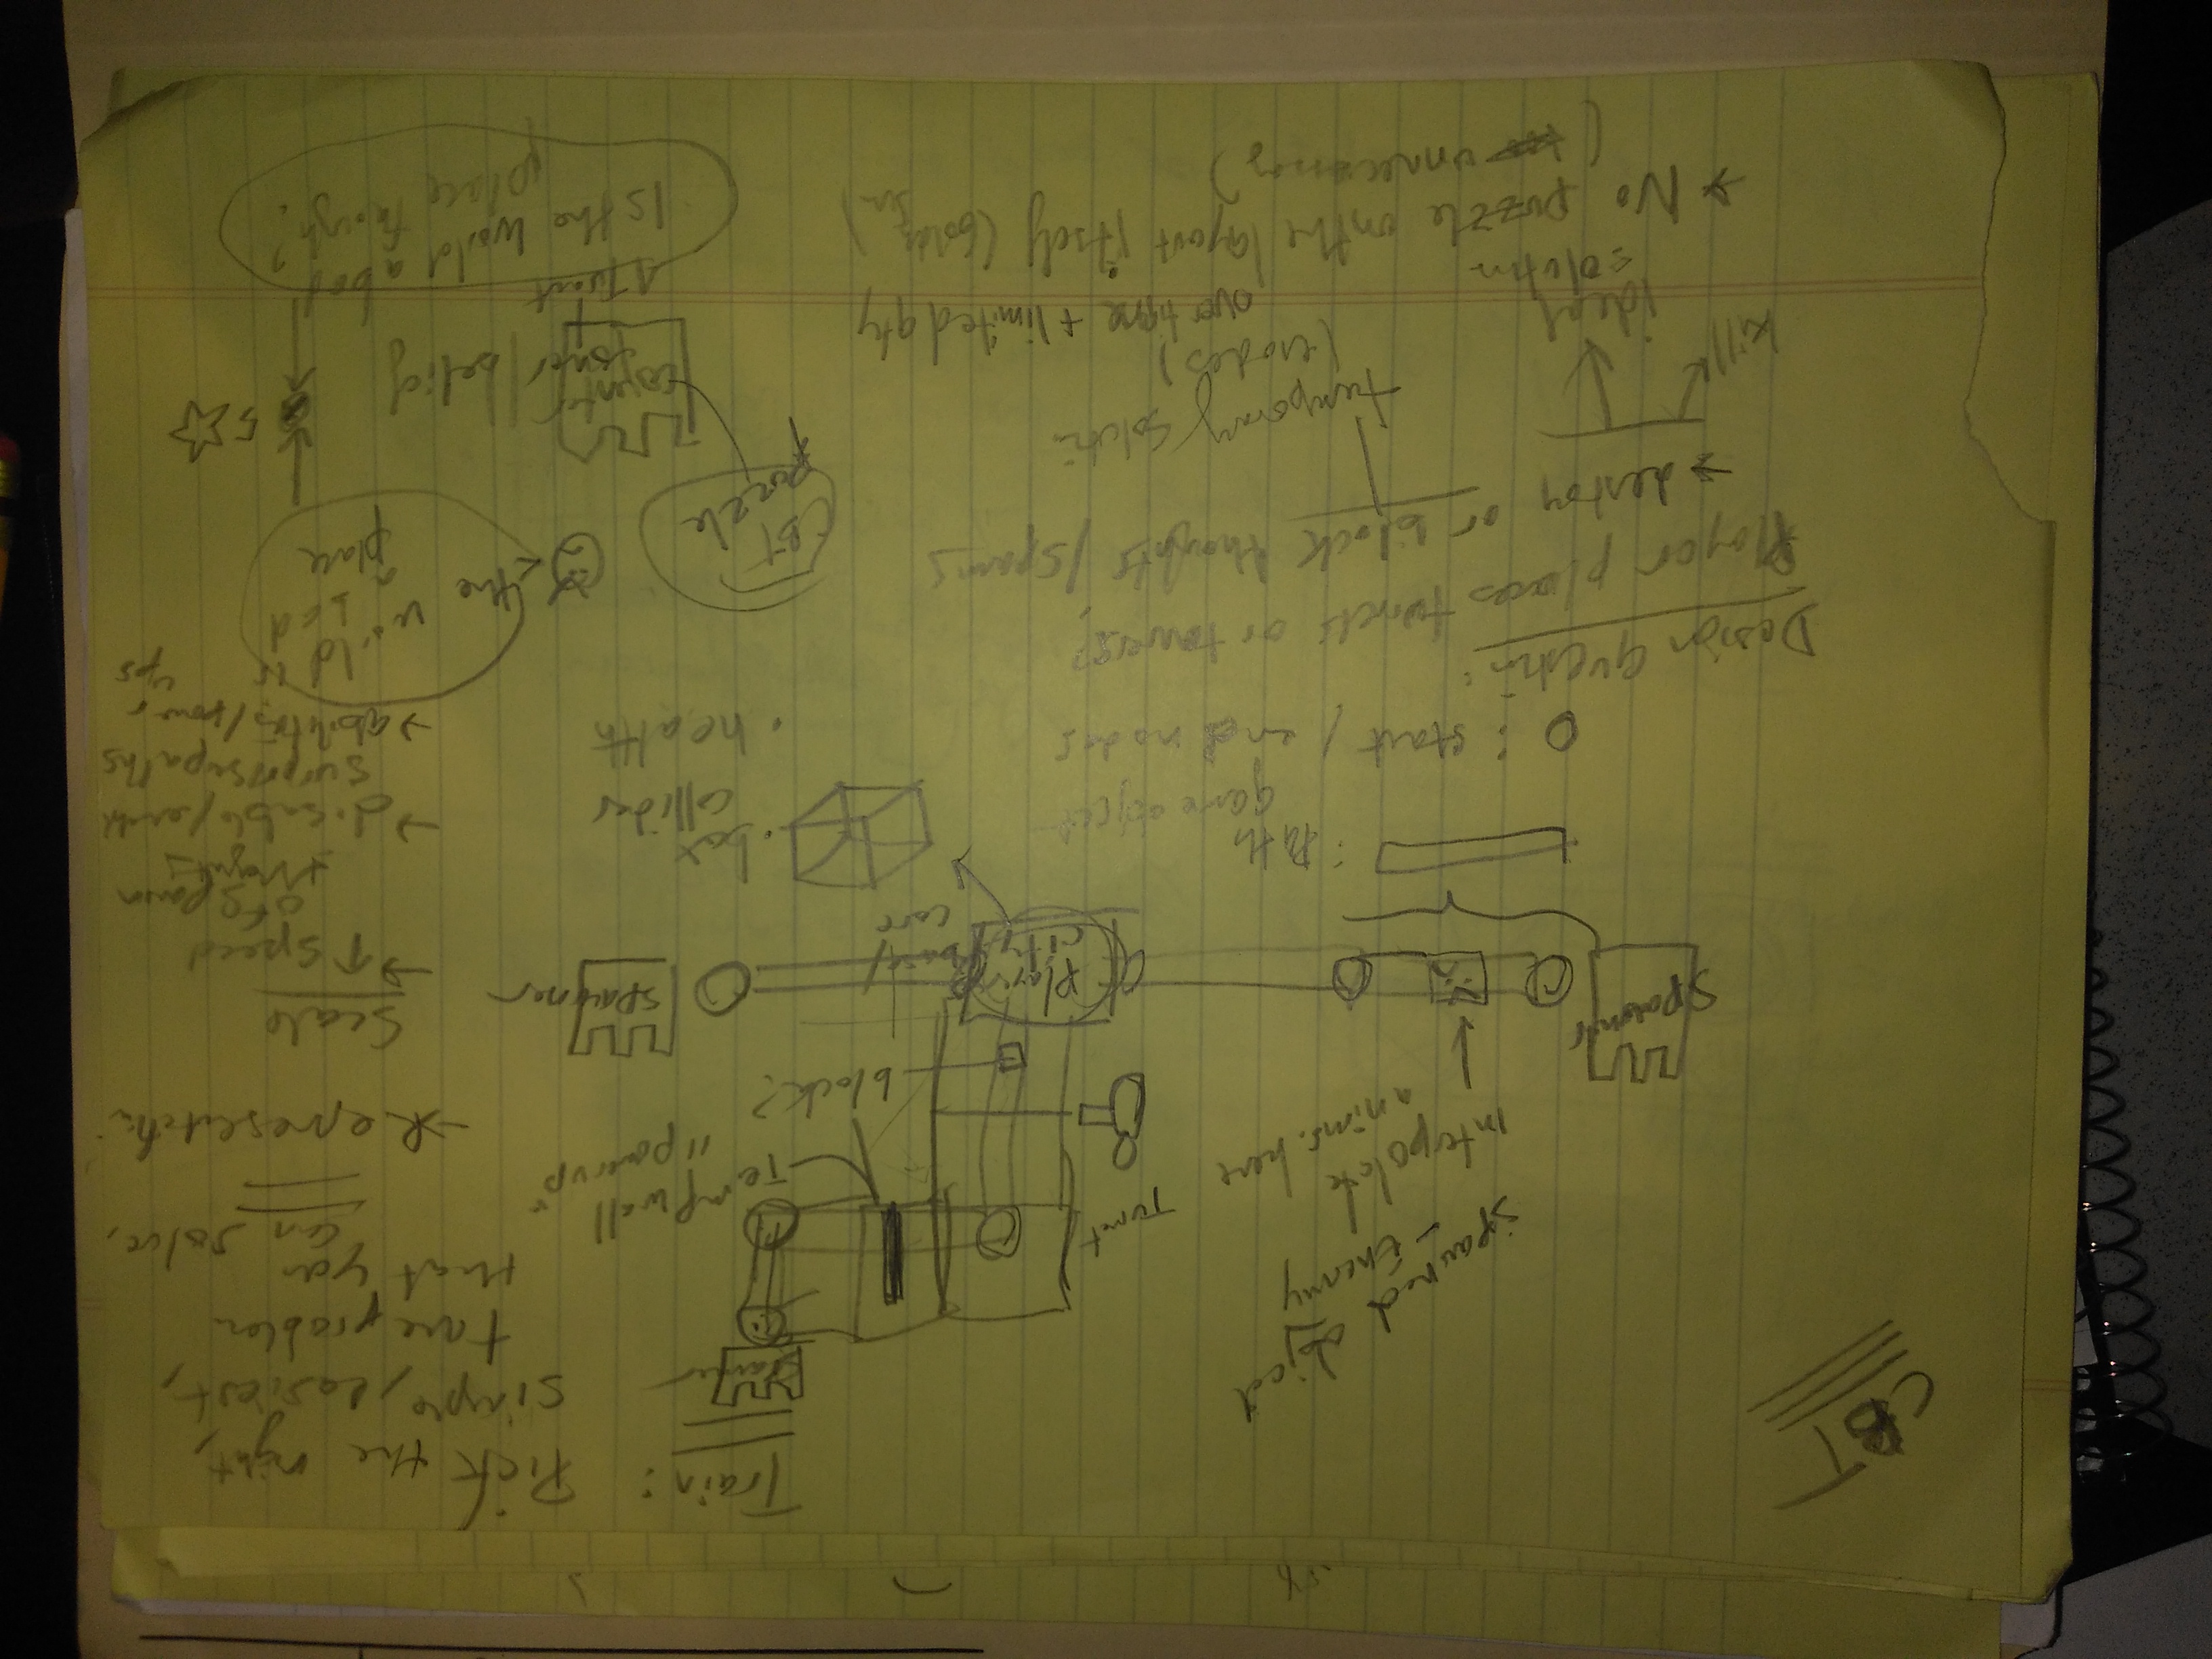 CBT
Train: Pick the right,
simple, easiest,
true problem
that you
can solve,
→ Representation
spawned object
- Enemy
interpolate
anims. here
Turret
Spawner
Temp wall
"powerup"
block?
Spawner
Spawner
player
city
base/
core
: Path
game object
. box
collider
. health
O : start / end nodes
Scale
→ ↑ speed
of spawn
thoughts
→ disable/enable
surprise paths
→ abilities/tower
ups
Design question:
Player places turrets or towers?
→ destroy or block thoughts / spawns
kill
ideal
solution
temporary solution
(erodes)
over time + limited qty
→ No puzzle on the layout itself (Golden
Sun)
(unnecessary)
CBT
puzzle
the world is
a bad
place
counter
tower/belief
5 ☆
Turret
Is the world a bad
place though?